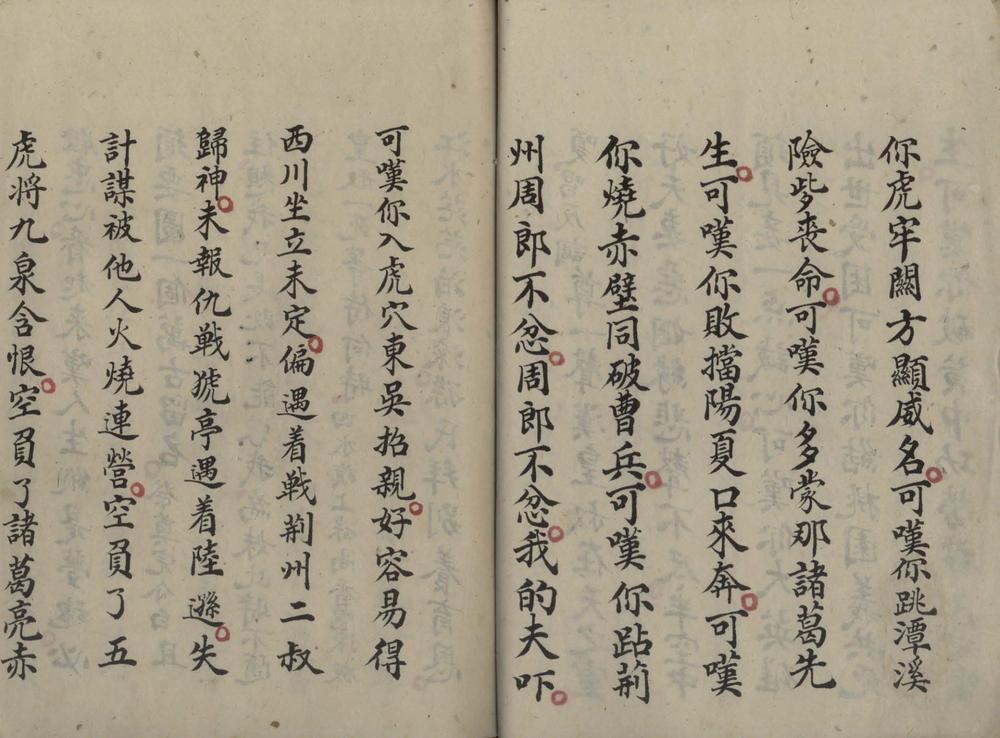 你虎牢關方顯威名可嘆你跳潭溪
險些喪命可嘆你多蒙那諸葛先
生可嘆你敗擋陽夏口來奔可嘆
你燒赤壁同破曹兵可嘆你跕荊
州周郎不忿周郎不忿我的夫吓
可嘆你入虎穴東吳招親好容易得
西川坐立未定偏遇着戰荊州二叔
歸神未報仇戦猇亭遇着陸遜失
計謀被他人火燒連營空員了五
虎将九泉含恨空員了諸葛亮赤